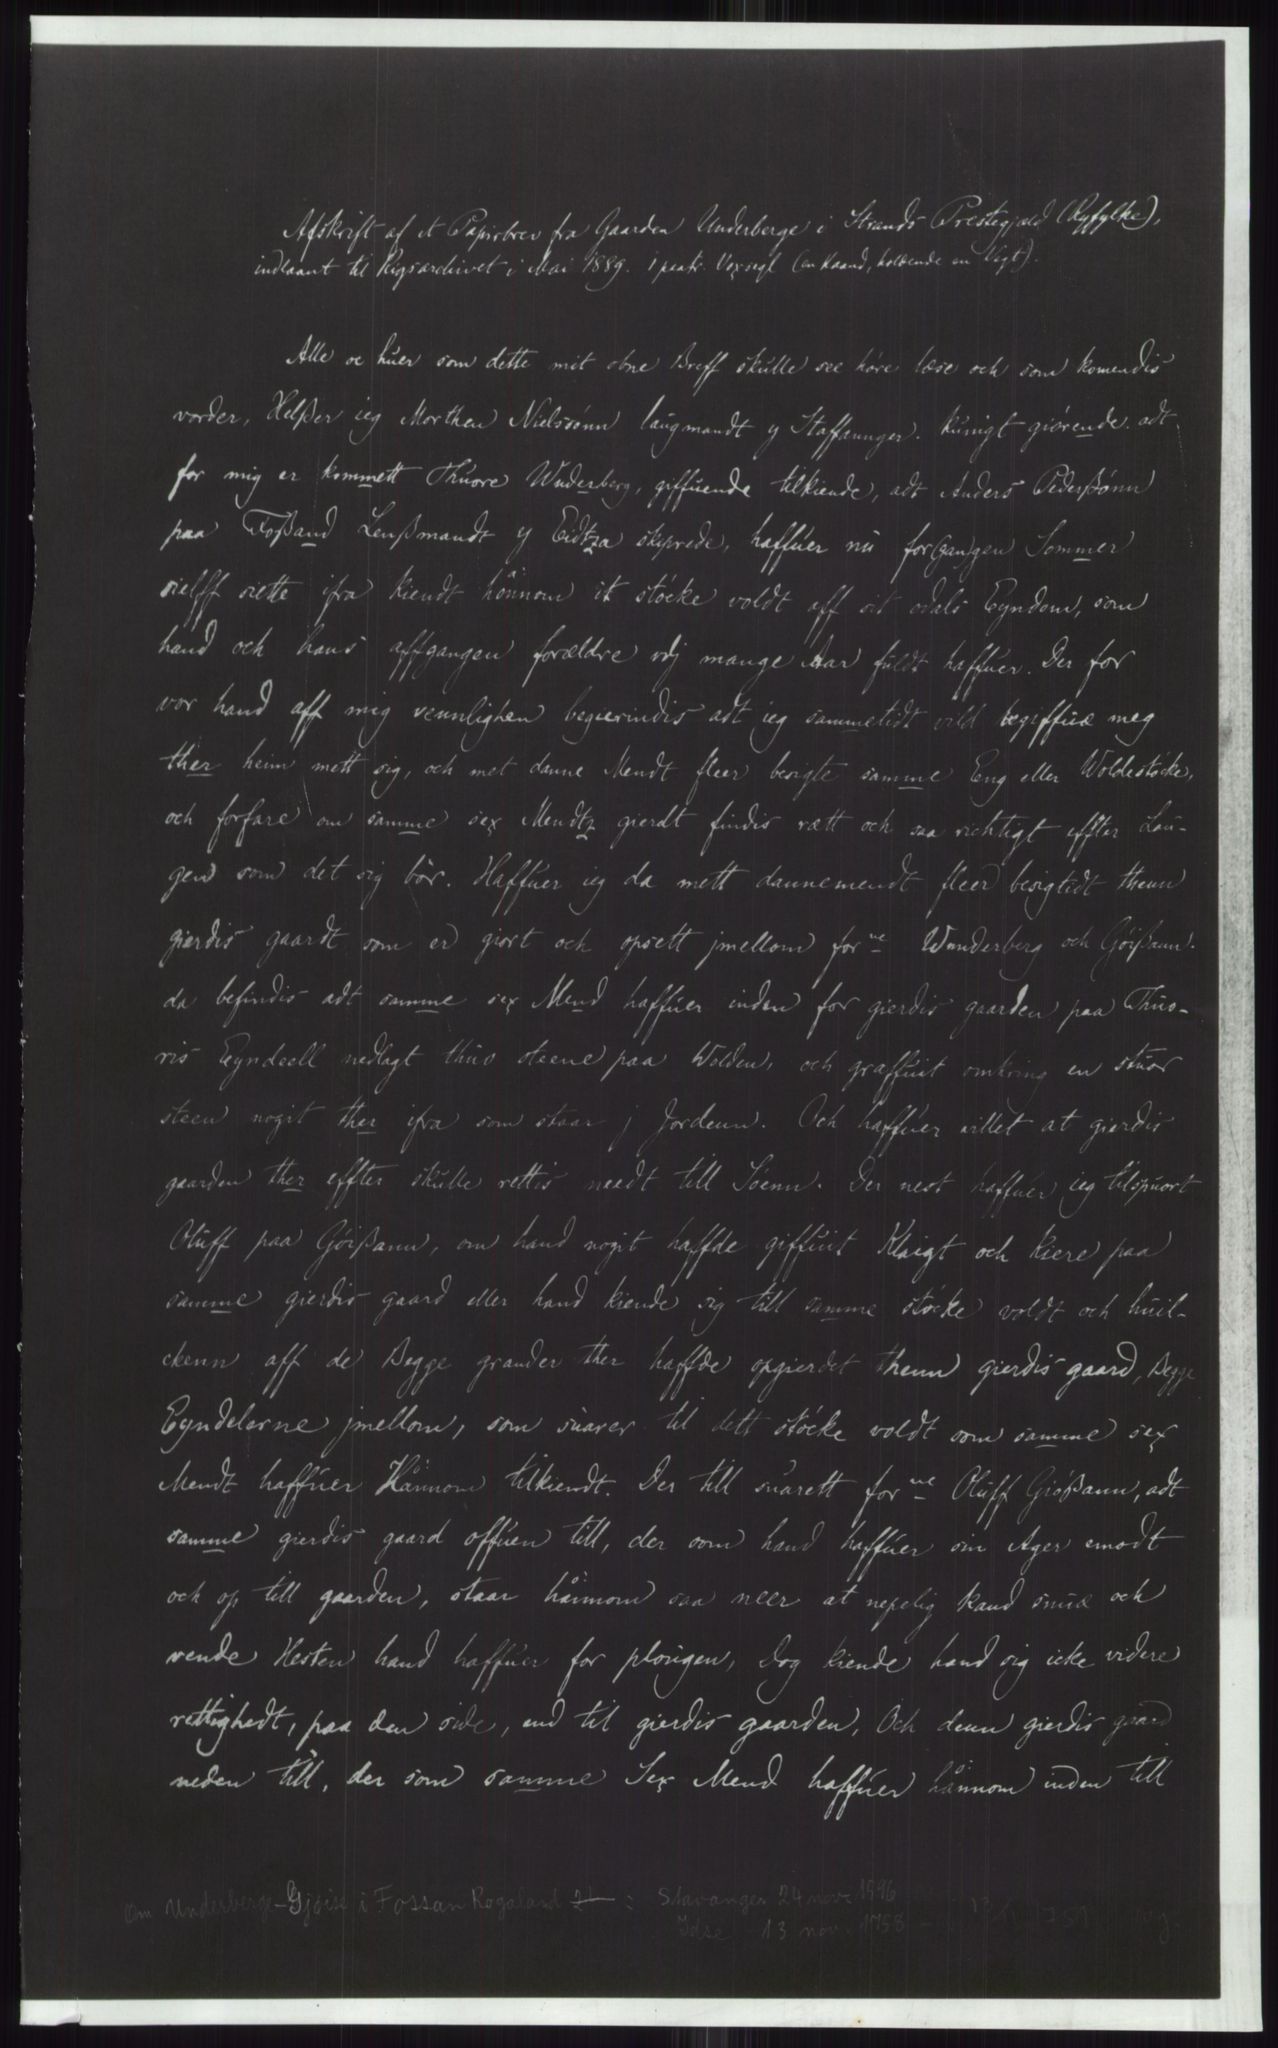 Afskrift af et Papirbrev fra Gaarden Underberge i Strands Prestegjæld (Ryfylke),
indlaant til Rigsarchivet i Mai 1889. 1 paatr. Voxsegl (en Haand, holdende en Vegt).
Alle oc huer som dette mit obne Breff skulle see höre læse och som komendis
vorder, Helßer ieg Morthen Nielssönn laugmandt y Staffaunger. kunigt giörende. adt
for mig er kommett Thuore Wnderberg, giffuende tilkiende, adt Anders Pederßönn
paa Foßand Lenßmandt y Eidtza skiprede, haffuer nu for(gan)gen Sommer
sielff siette ifra kiendt hönnom it stöcke voldt aff sit odals Eyndom, som
hand och hans affgangen forældre vdj mange Aar fuldt haffuer. Der for
vor hand aff mig vennlighen begierindis adt ieg sammetidt vild begiffuæ meg
ther heim mett sig, och met danne Mendt fleer besigte samme Eng eller Woldestöcke,
och forfare om samme sex Mendtz gierdt findis rætt och saa richtigt effter Lau-
gen som det sig bör. Haffuer ieg da mett dannemendt fleer besigtidt thenn
gierdis gaardt som er giort och opsett jmellom for ne Wnderberg och Göißann.
da befindis adt samme sex Mend haffuer inden for gierdis gaarden paa Thuo-
ris Eyndeell nedlagt thuo steene paa Wolden, och graffuit omkring en stuor
steen nogit ther ifra som staar j Jordenn. Och haffuer villet at gierdis
gaarden ther effter skulle rettis needt till Söenn. Der nest haffuer ieg tilspuort
Oluff paa Göißann, om hand nogit haffde giffuit Klaigt och kiere paa
samme gierdis gaard eller hand kiende sig till samme stöcke voldt och huil-
ckenn aff de Begge grander ther haffde opgierdet thenn gierdis gaard, Begge
Eyndelerne jmellom, som suarer til dett stöcke voldt som samme sex
Mendt haffuer Hånnom tilkiendt. Der till suarett for ne Oluff Giößann, adt
samme gierdis gaard offuen till, der som hand haffuer sin Ager emodt
och op till gaarden, staar hånnom saa neer at nepelig kand snuæ och
vende Hesten hand haffuer for plougen, Dog kiende hand sig icke videre
rettighedt, paa den side, end til gierdis gaarden, Och denn gierdis gaard
neden till, der som samme Sex Mend haffuer hånnom inden till
Om Underberge-Gjöise i Fossan Rogaland : Stavanger 24 nov. 1596
Idse 13 nov. 1758